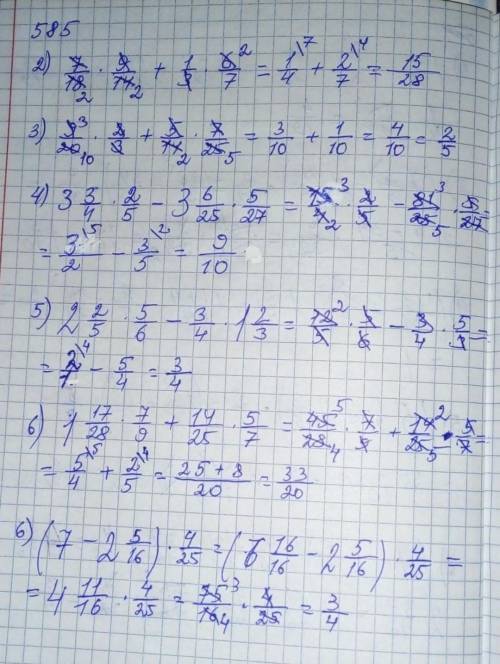 585
2) 7/18 2 · 9/14 2 + 1/3 · 6/7 2 = 1/4 \7 + 2/7 \4 = 15/28
3) 9/20 3 10 · 2/3 + 5/14 2 · 7/25 5 = 3/10 + 1/10 = 4/10 = 2/5
4) 3 3/4 · 2/5 − 3 6/25 · 5/27 = 15/4 3 2 · 2/5 − 81/25 3 5 · 5/27
= 3/2 \5 − 3/5 \2 = 9/10
5) 2 2/5 · 5/6 − 3/4 · 1 2/3 = 12/5 2 · 5/6 − 3/4 · 5/3 =
= 2/1 \4 − 5/4 = 3/4
6) 1 17/28 · 7/9 + 14/25 · 5/7 = 45/28 5 4 · 7/9 + 14/25 2 5 · 5/7 =
= 5/4 \5 + 2/5 \4 = 25+8/20 = 33/20
6) (7 − 2 5/16) · 4/25 = (6 16/16 − 2 5/16) · 4/25 =
= 4 11/16 · 4/25 = 75/16 3 4 · 4/25 = 3/4